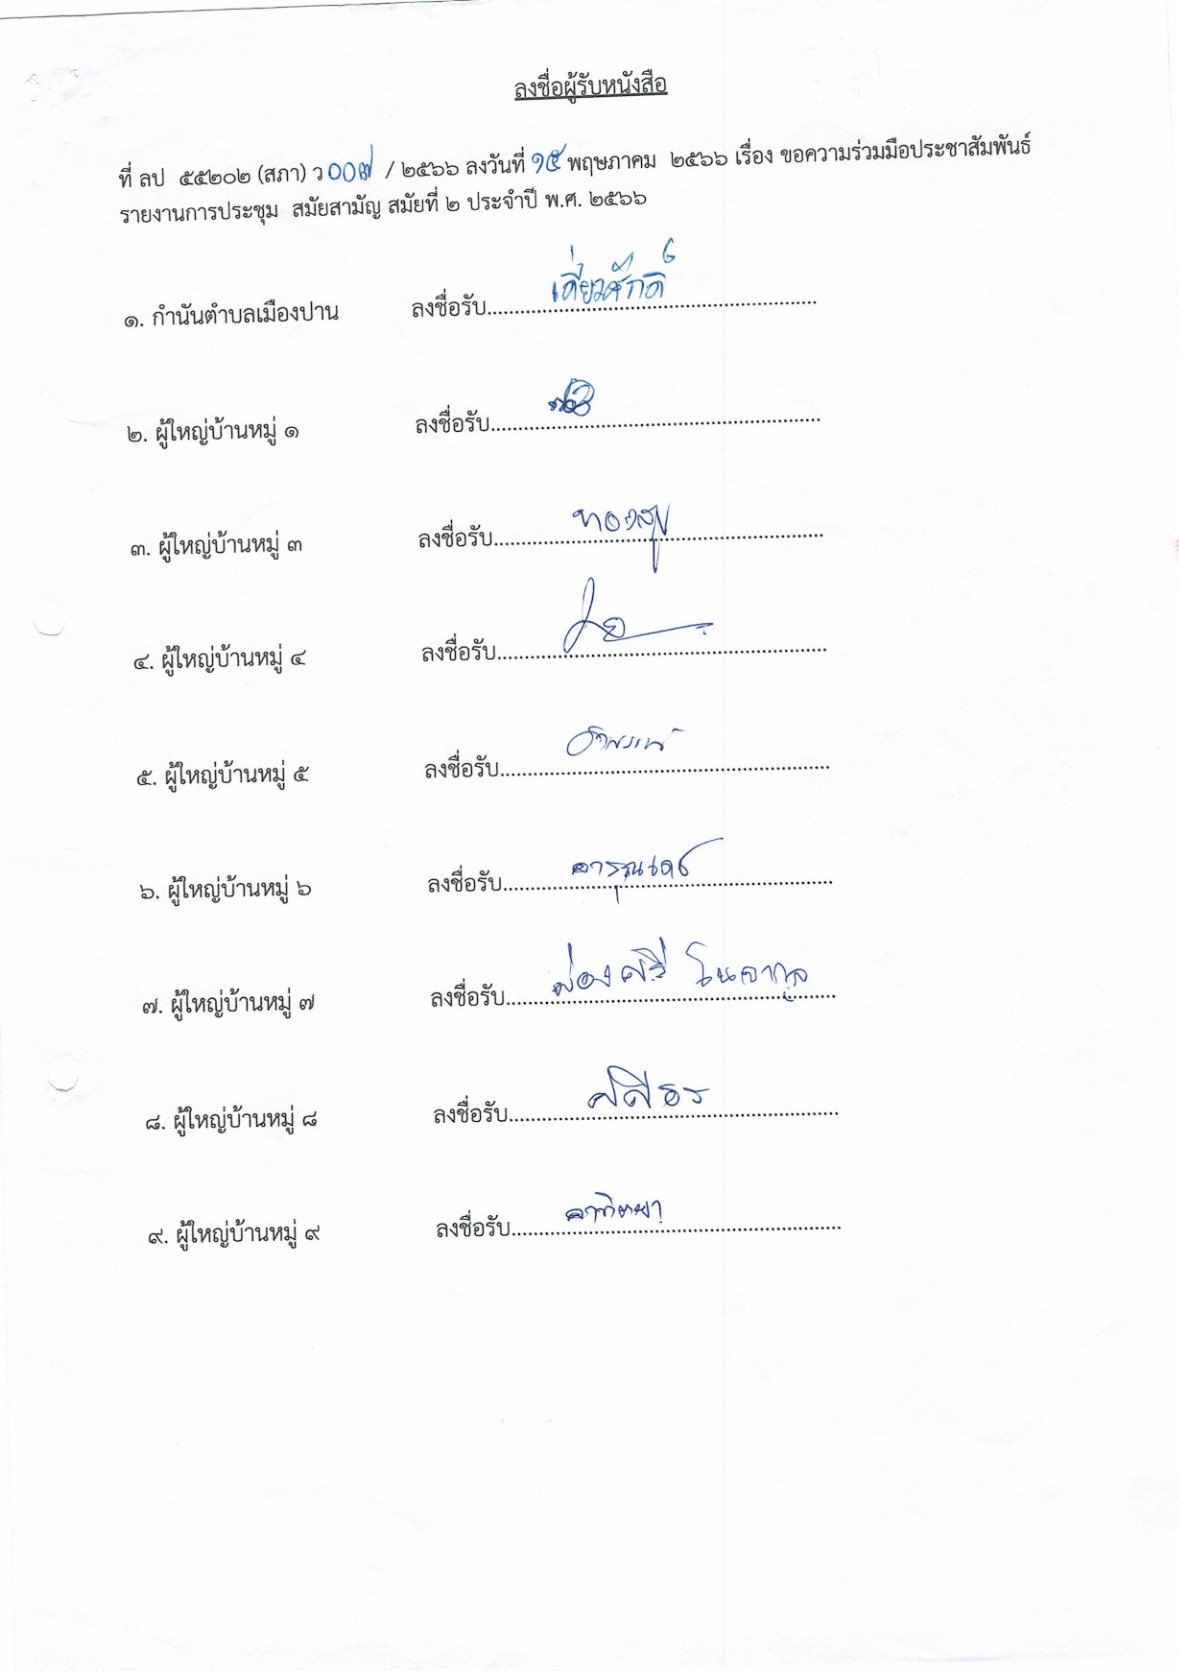 ลงชื่อผู้รับหนังสือ
ที่ ลป ๕๕๒๐๒ (สภา) ว ๐๐๗ / ๒๕๖๖ ลงวันที่ ๑๕ พฤษภาคม ๒๕๖๖ เรื่อง ขอความร่วมมือประชาสัมพันธ์
รายงานการประชุม สมัยสามัญ สมัยที่ ๒ ประจำปี พ.ศ. ๒๕๖๖
๑. กำนันตำบลเมืองปาน ลงชื่อรับ............เดี่ยวศักดิ์............
๒. ผู้ใหญ่บ้านหมู่ ๑ ลงชื่อรับ........................
๓. ผู้ใหญ่บ้านหมู่ ๓ ลงชื่อรับ............ทองสุข............
๔. ผู้ใหญ่บ้านหมู่ ๔ ลงชื่อรับ........................
๕. ผู้ใหญ่บ้านหมู่ ๕ ลงชื่อรับ........................
๖. ผู้ใหญ่บ้านหมู่ ๖ ลงชื่อรับ........................
๗. ผู้ใหญ่บ้านหมู่ ๗ ลงชื่อรับ........................
๘. ผู้ใหญ่บ้านหมู่ ๘ ลงชื่อรับ............ศศิธร............
๙. ผู้ใหญ่บ้านหมู่ ๙ ลงชื่อรับ............อาทิตยา............